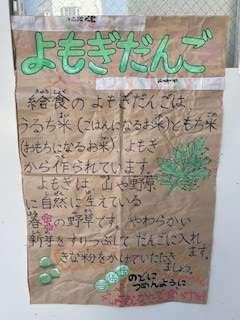 よもぎだんご
給食のよもぎだんごは、
うるち米(ごはんになるお米)ともち米
(おもちになるお米)、よもぎ
から作られています。
よもぎは、山や野原
に自然に生えている
春の野草です。やわらかい
新芽をすりつぶしてだんごに入れ
ます。
きな粉をかけていただき
ましょう。
のどに
つめんように